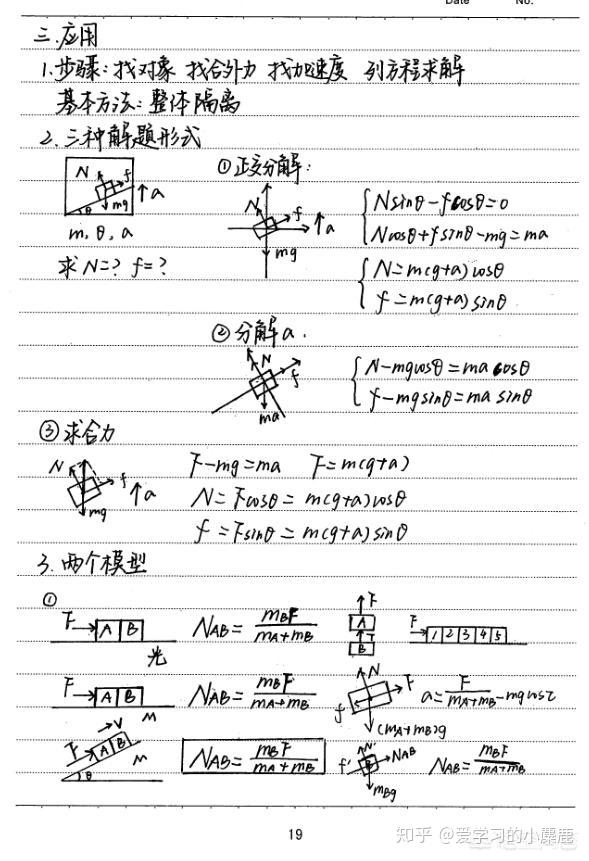 Date No.
三.应用
1.步骤:找对象 找合外力 找加速度 列方程求解
基本方法:整体 隔离
2.三种解题形式
N f
mg
θ
↑a
m, θ, a
求 N=? f=?
①正交分解:
N f
mg
↑a
Nsinθ-fcosθ=0
Ncosθ+fsinθ-mg=ma
N=m(g+a)cosθ
f=m(g+a)sinθ
②分解a.
N f
ma
N-mgcosθ=ma cosθ
f-mgsinθ=ma sinθ
③求合力
N f
mg
↑a
F-mg=ma F=m(g+a)
N=Fcosθ=m(g+a)cosθ
f=Fsinθ=m(g+a)sinθ
3.两个模型
①
F A B
光
N_AB=m_BF/(m_A+m_B)
F A T B
F 1 2 3 4 5
F A B M
N_AB=m_BF/(m_A+m_B)
N F f
(m_A+m_B)g
a=F/(m_A+m_B)-mgcosτ
F A B V M θ
N_AB=m_BF/(m_A+m_B)
f' N' B N_AB
m_Bg
N_AB=m_BF/(m_A+m_B)
19
知乎 @爱学习的小麋鹿